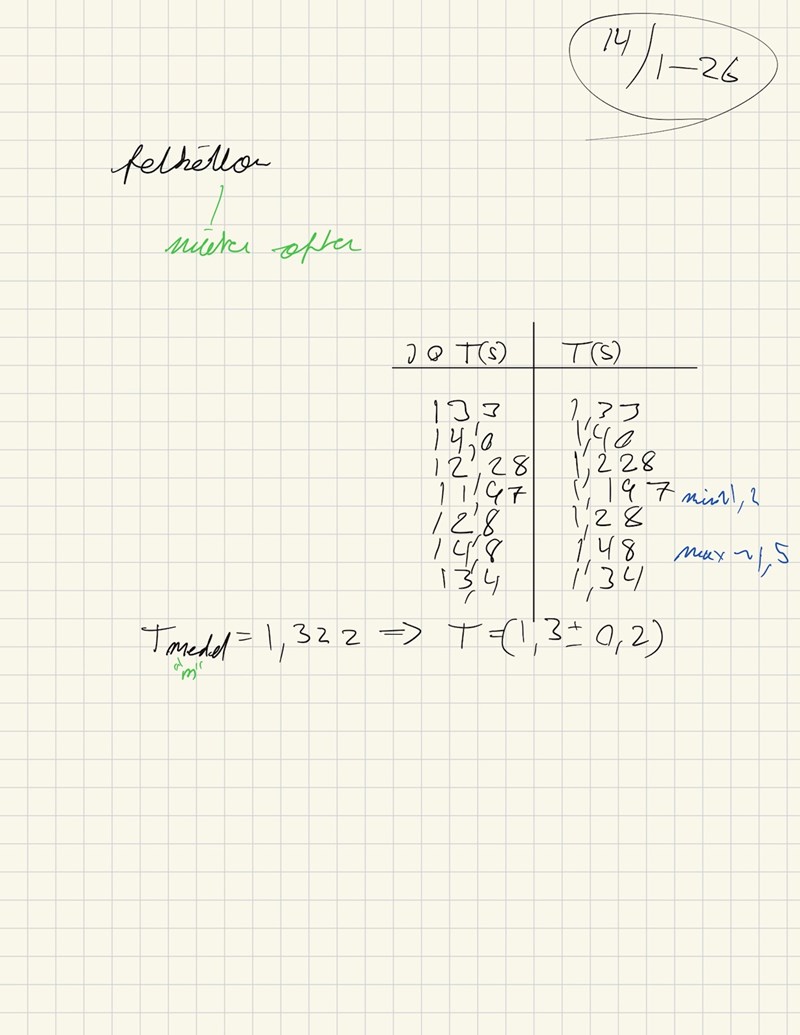 14/1-26
felkällor
mäta ofta
10 T(s) T(s)
13,3 1,33
14,0 1,40
12,28 1,228
11,97 1,197 min 1,2
12,8 1,28
14,8 1,48 max ~1,5
13,4 1,34
Tmedel = 1,322 => T=(1,3 ± 0,2)
"m"